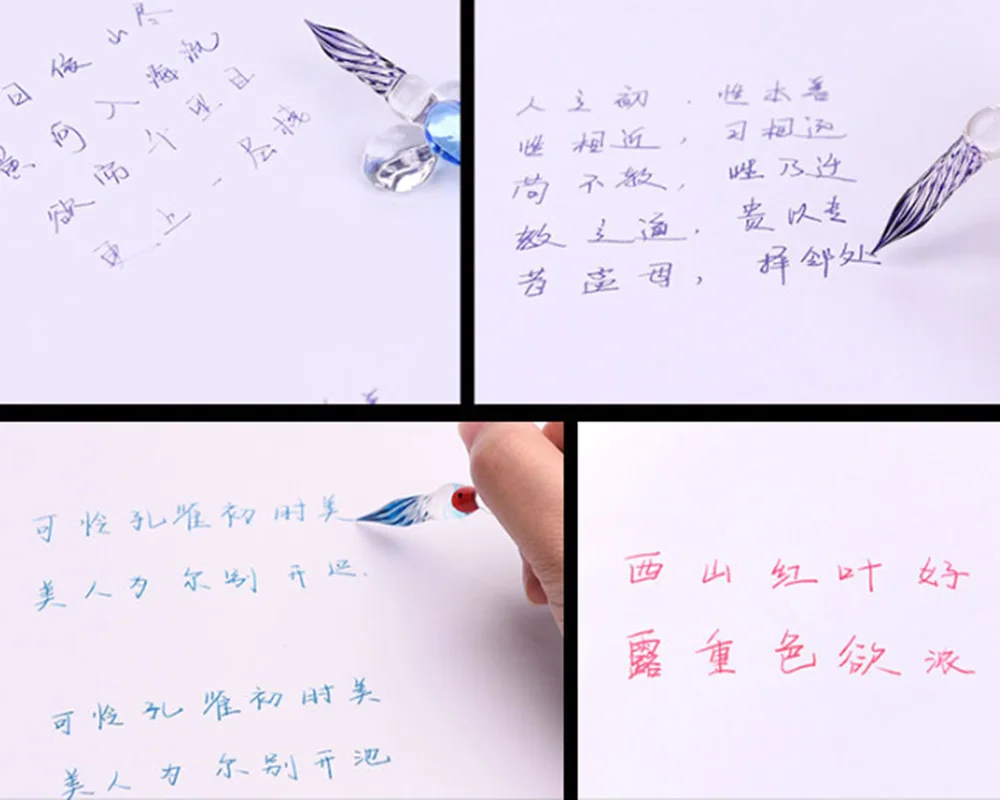 日依山尽
黄河入海流
欲穷千里目
更上一层楼
人之初，性本善
性相近，习相远
苟不教，性乃迁
教之道，贵以专
昔孟母，择邻处
可怜孔雀初时美
美人为尔别开迟.
可怜孔雀初时美
美人为尔别开池
西山红叶好
露重色欲浓